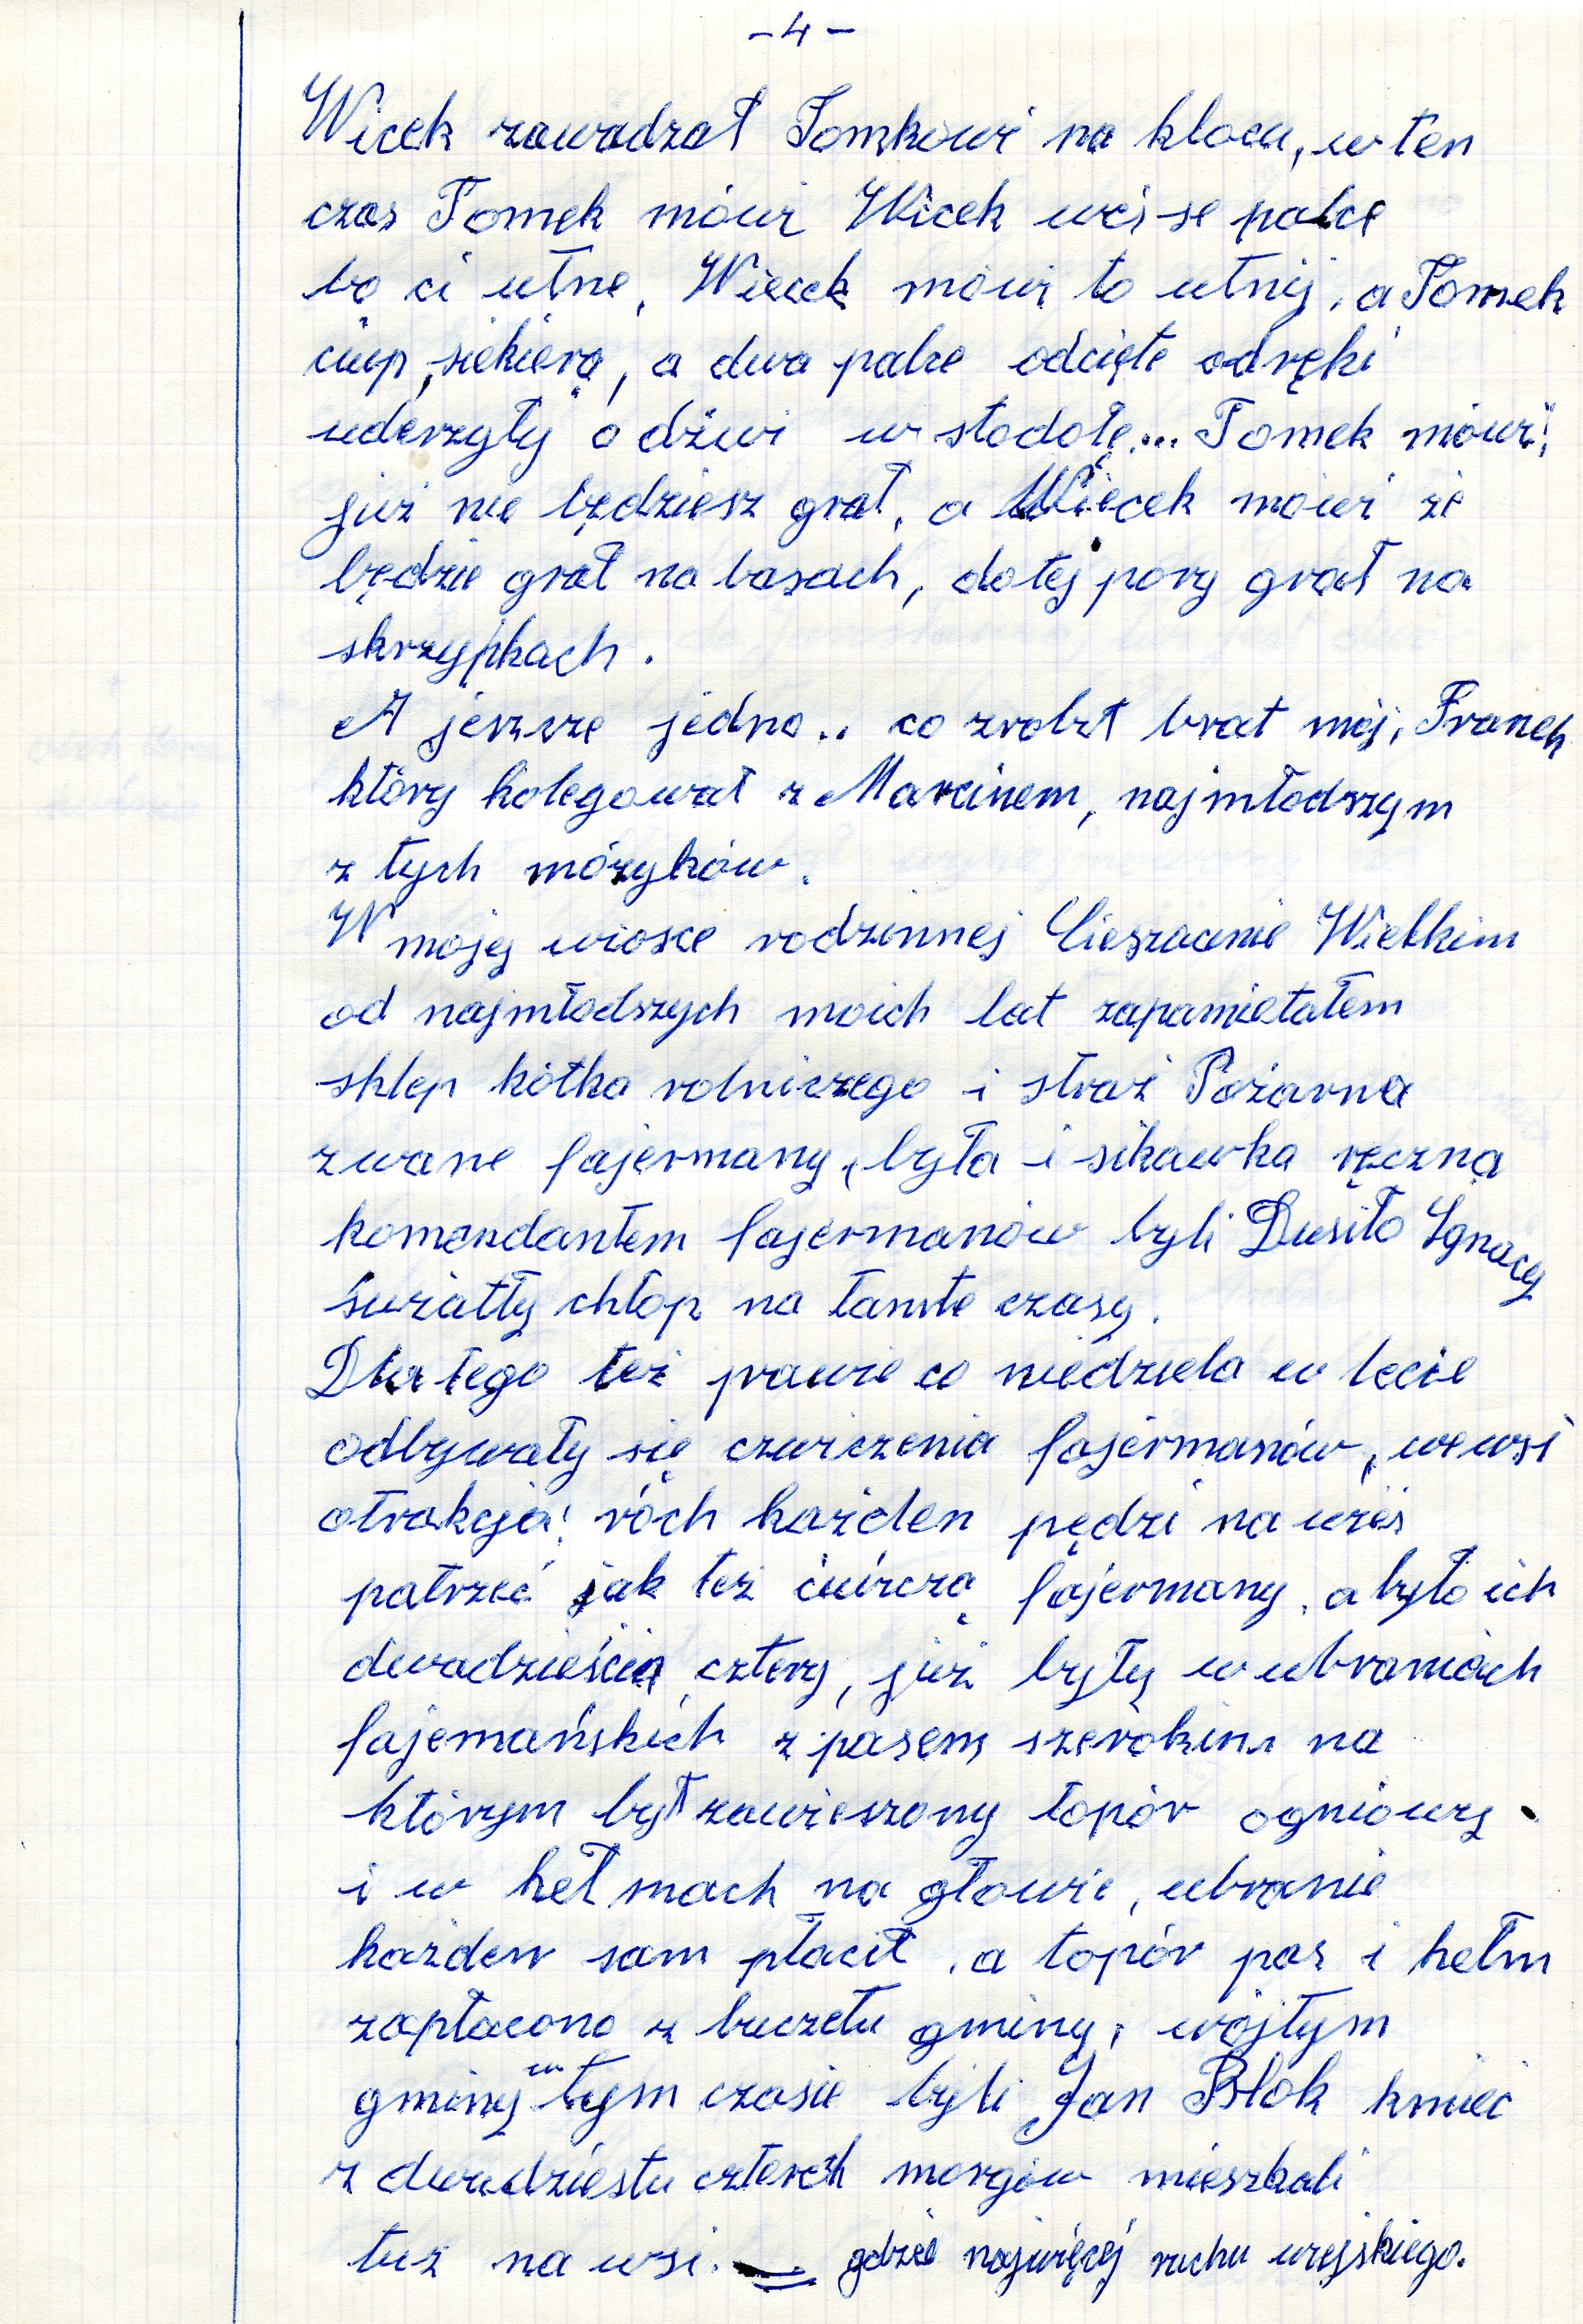 - 4 -
Wicek zawadzał Tomkowi na klocu, w ten
czas Tomek mówi Wicek weś se palce
bo ci utne, Wicek mówi to utnij, a Tomek
ciup, siekierą, a dwa palce odcięte od ręki
uderzyły o dźwi w stodole... Tomek mówi;
już nie będziesz grał, a Wicek mówi że
będzie grał na basach, do tej pory grał na
skrzypkach.
A jeszsze jedno.. co zrobił brat mój, Franek
który kolegował z Marcinem, najmłodszym
z tych mózyków.
W mojej wiosce rodzinnej Cieszacinie Wielkim
od najmłodszych moich lat zapamietałem
sklep kótka rolniczego i straż Pożarna
zwane fajermany, była i sikawka ręczna
komendantem fajermanów byli Dusiło Ignacy
światły chłop na tamte czasy.
Dla tego też prawie co niedziela w lecie
odbywały się czwiczenia fajermanów, we wsi
atrakcja! róch każden pędzi na wieś
patrzeć jak też ćwiczą fajermany, a było ich
dwadzieścia cztery, już były w ubraniach
fajemańskich z pasem szerokim na
którym był zawieszony topór ogniowy
i w hełmach na głowie, ubranie
każden sam płacił, a topór pas i hełm
zapłacono z buczetu gminy, wójtym
gminy w tym czasie byli Jan Błok kmieć
z dwudziestu czterech morgów mieszkali
tuż na wsi. gdzie najwięcej ruchu wiejskiego.